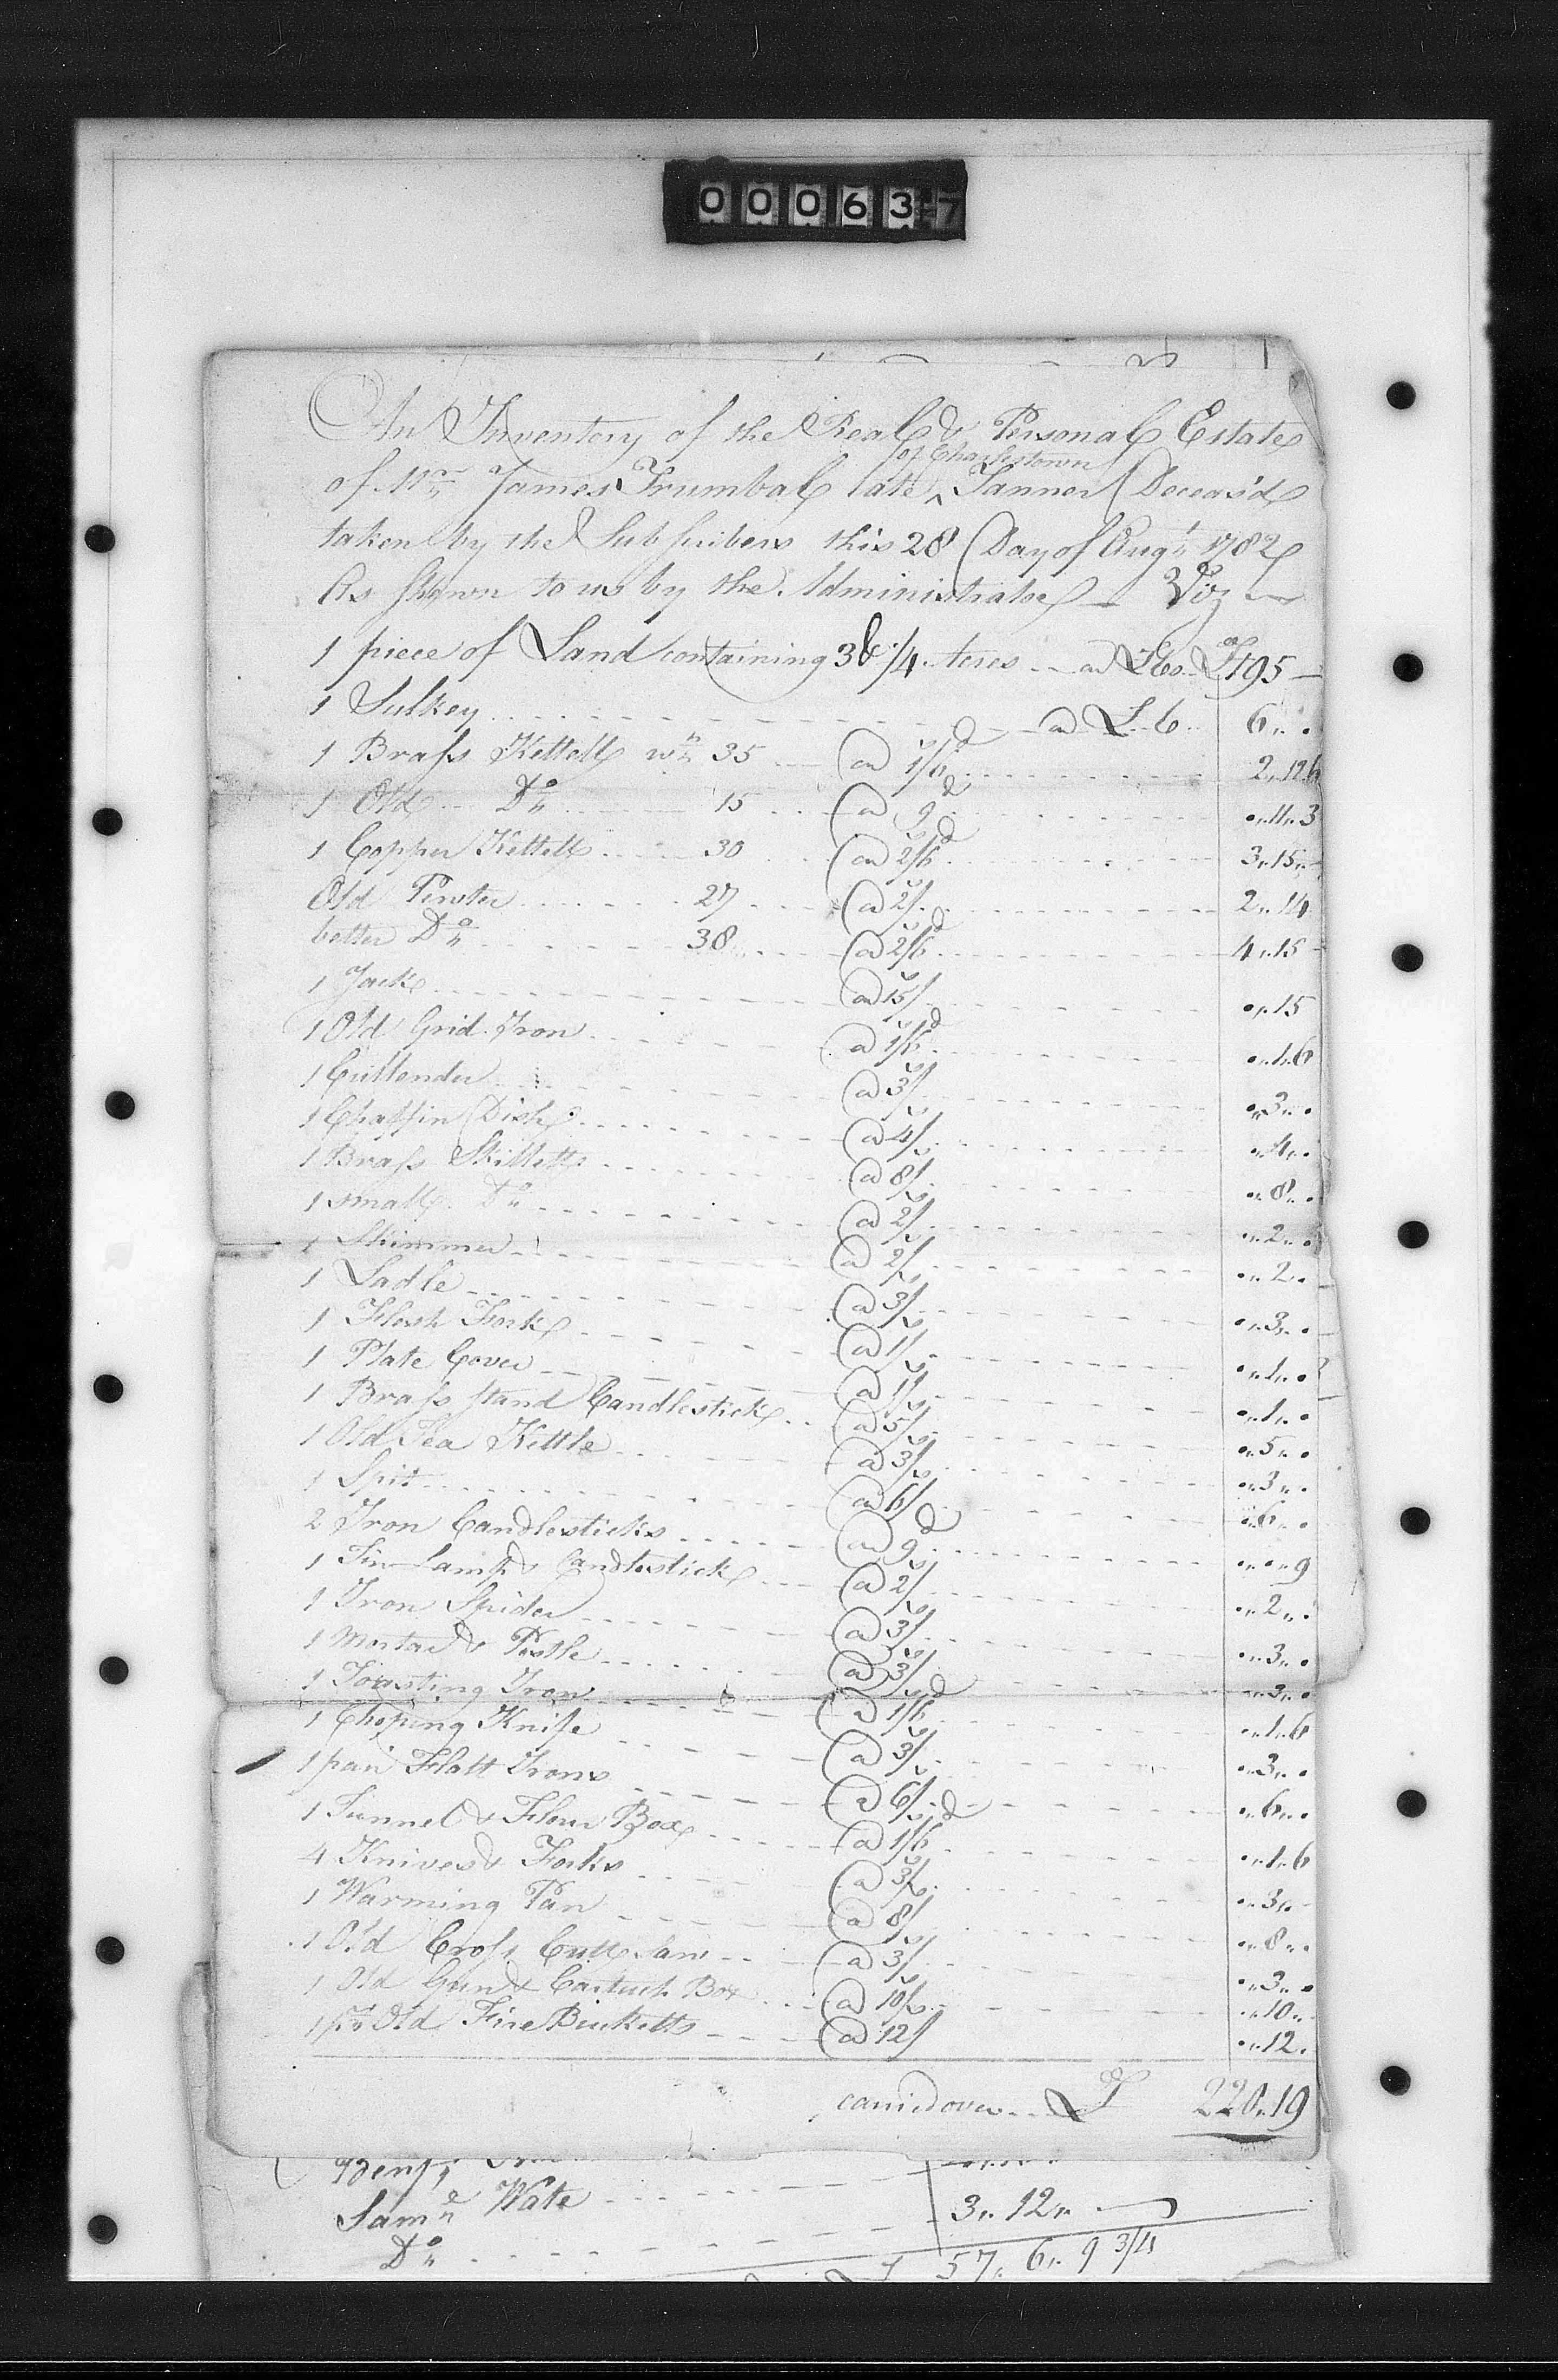 000637
An Inventory of the Real & Personal Estate
of Mr James Trumbal late ^ of Charlestown Tanner Deceas'd
taken by the Subscribers this 28 Day of Augt 1782
As shewn to us by the Administrator — Viz
1 piece of Land containing 3 & 1/4 Acres - a £60 £195 —
1 Sulkey - a £6 6„ „
1 Brass Kettell wt 35 a 1/6d 2„12„6
1 Old Do 15 a 9d „11„3
1 Copper Kettell 30 a 2/6d 3„15„
Old Pewter 27 a 2/ 2„14
better Do 38 a 2/6d 4„15
1 Jack a 15/ „15
1 Old Grid Iron a 1/6d „1„6
1 Cullender a 3/ „3„
1 Chaffin Dish a 4/ „4„
1 Brass Skillett a 8/ „8„
1 small Do a 2/ „2„
1 Skimmer a 2/ „2„
1 Ladle a 3/ „3„
1 Flesh Fork a 1/ „1„
1 Plate Cover a 1/ „1„
1 Brass stand Candlestick a 5/ „5„
1 Old Tea Kettle a 3/ „3„
1 Spit a 6/ „6„
2 Iron Candlesticks a 9d „ „9
1 Tin Lamp & Candlestick a 2/ „2„
1 Iron Spider a 3/ „3„
1 Mortar & Pestle a 3/ „3„
1 Toasting Iron a 1/6d „1„6
1 Choping Knife a 3/ „3„
1 pair Flatt Irons a 6/ „6„
1 Tunnel & Flour Box a 1/6d „1„6
4 Knives & Forks a 3/ „3„
1 Warming Pan a 8/ „8„
1 Old Cross Cutt Saw a 3/ „3„
1 Old Gun & Cartuch Box a 10/ „10„
1 pr Old Fire Bucketts a 12/ „12„
carried over £ 220„19
Benjn
Saml Wate 3„12„
Do
57„6„9 3/4